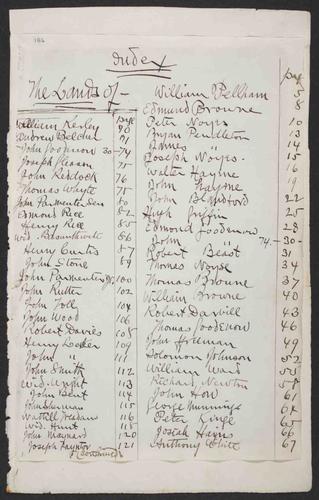 Index
The Lands of—
page
William Kerley 80
Andrew Belcher 71
John Goodnow 30-74
Joseph Gleason 75
John Ruddock 76
Thomas Whyte 75
John Parmenter Sen 80
Edmond Rice 82
Henry Rice 85
Wid. Bassumthwite 86
Henry Curtis 87
John Stone 89
John Parmenter Jr. 100
John Rutter 102
John Toll 104
John Wood 106
Robert Davies 108
Henry Loker 109
John " 111
John Smith 112
Wid. Wright 113
John Bent 114
John Sherman 115
Wid. Hunt 118
John Maynard 120
Joseph Taynter 121
page
William Pelham 5
Edmund Browne 8
Peter Noyes 10
Bryan Pendleton 13
James " 14
Joseph Noyes 15
Walter Hayne 16
John Hayne 19
John Blandford 22
Hugh Griffin 25
Edmond Goodenow 28
John " 74-30-
Robert Beast 31
Thomas Noyse 34
Thomas Browne 37
William Browne 40
Robert Darvill 43
Thomas Goodenow 46
John Freeman 49
Solomon Johnson 52
William Ward 55
Richard Newton 58
John How 61
George Munnings 64
Peter Kinge 65
Josiah Hayns 66
Anthony White 67